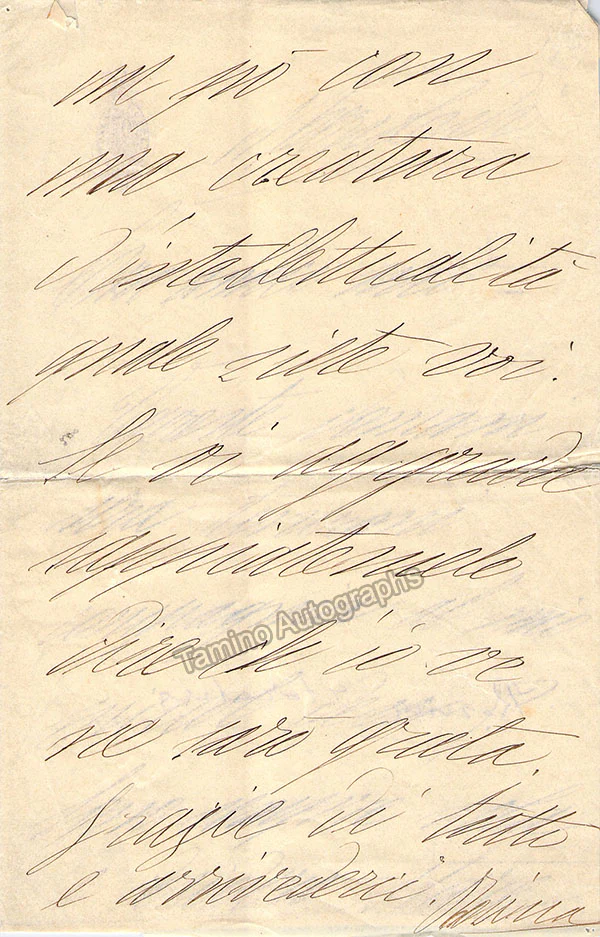 un pò con
una creatura
d'intellettualità
quale siete voi.
Se vi aggrada
sappiatemelo
dire ch'io ve
ne sarò grata.
Grazie di tutto
e arrivederci.
Tamino Autographs